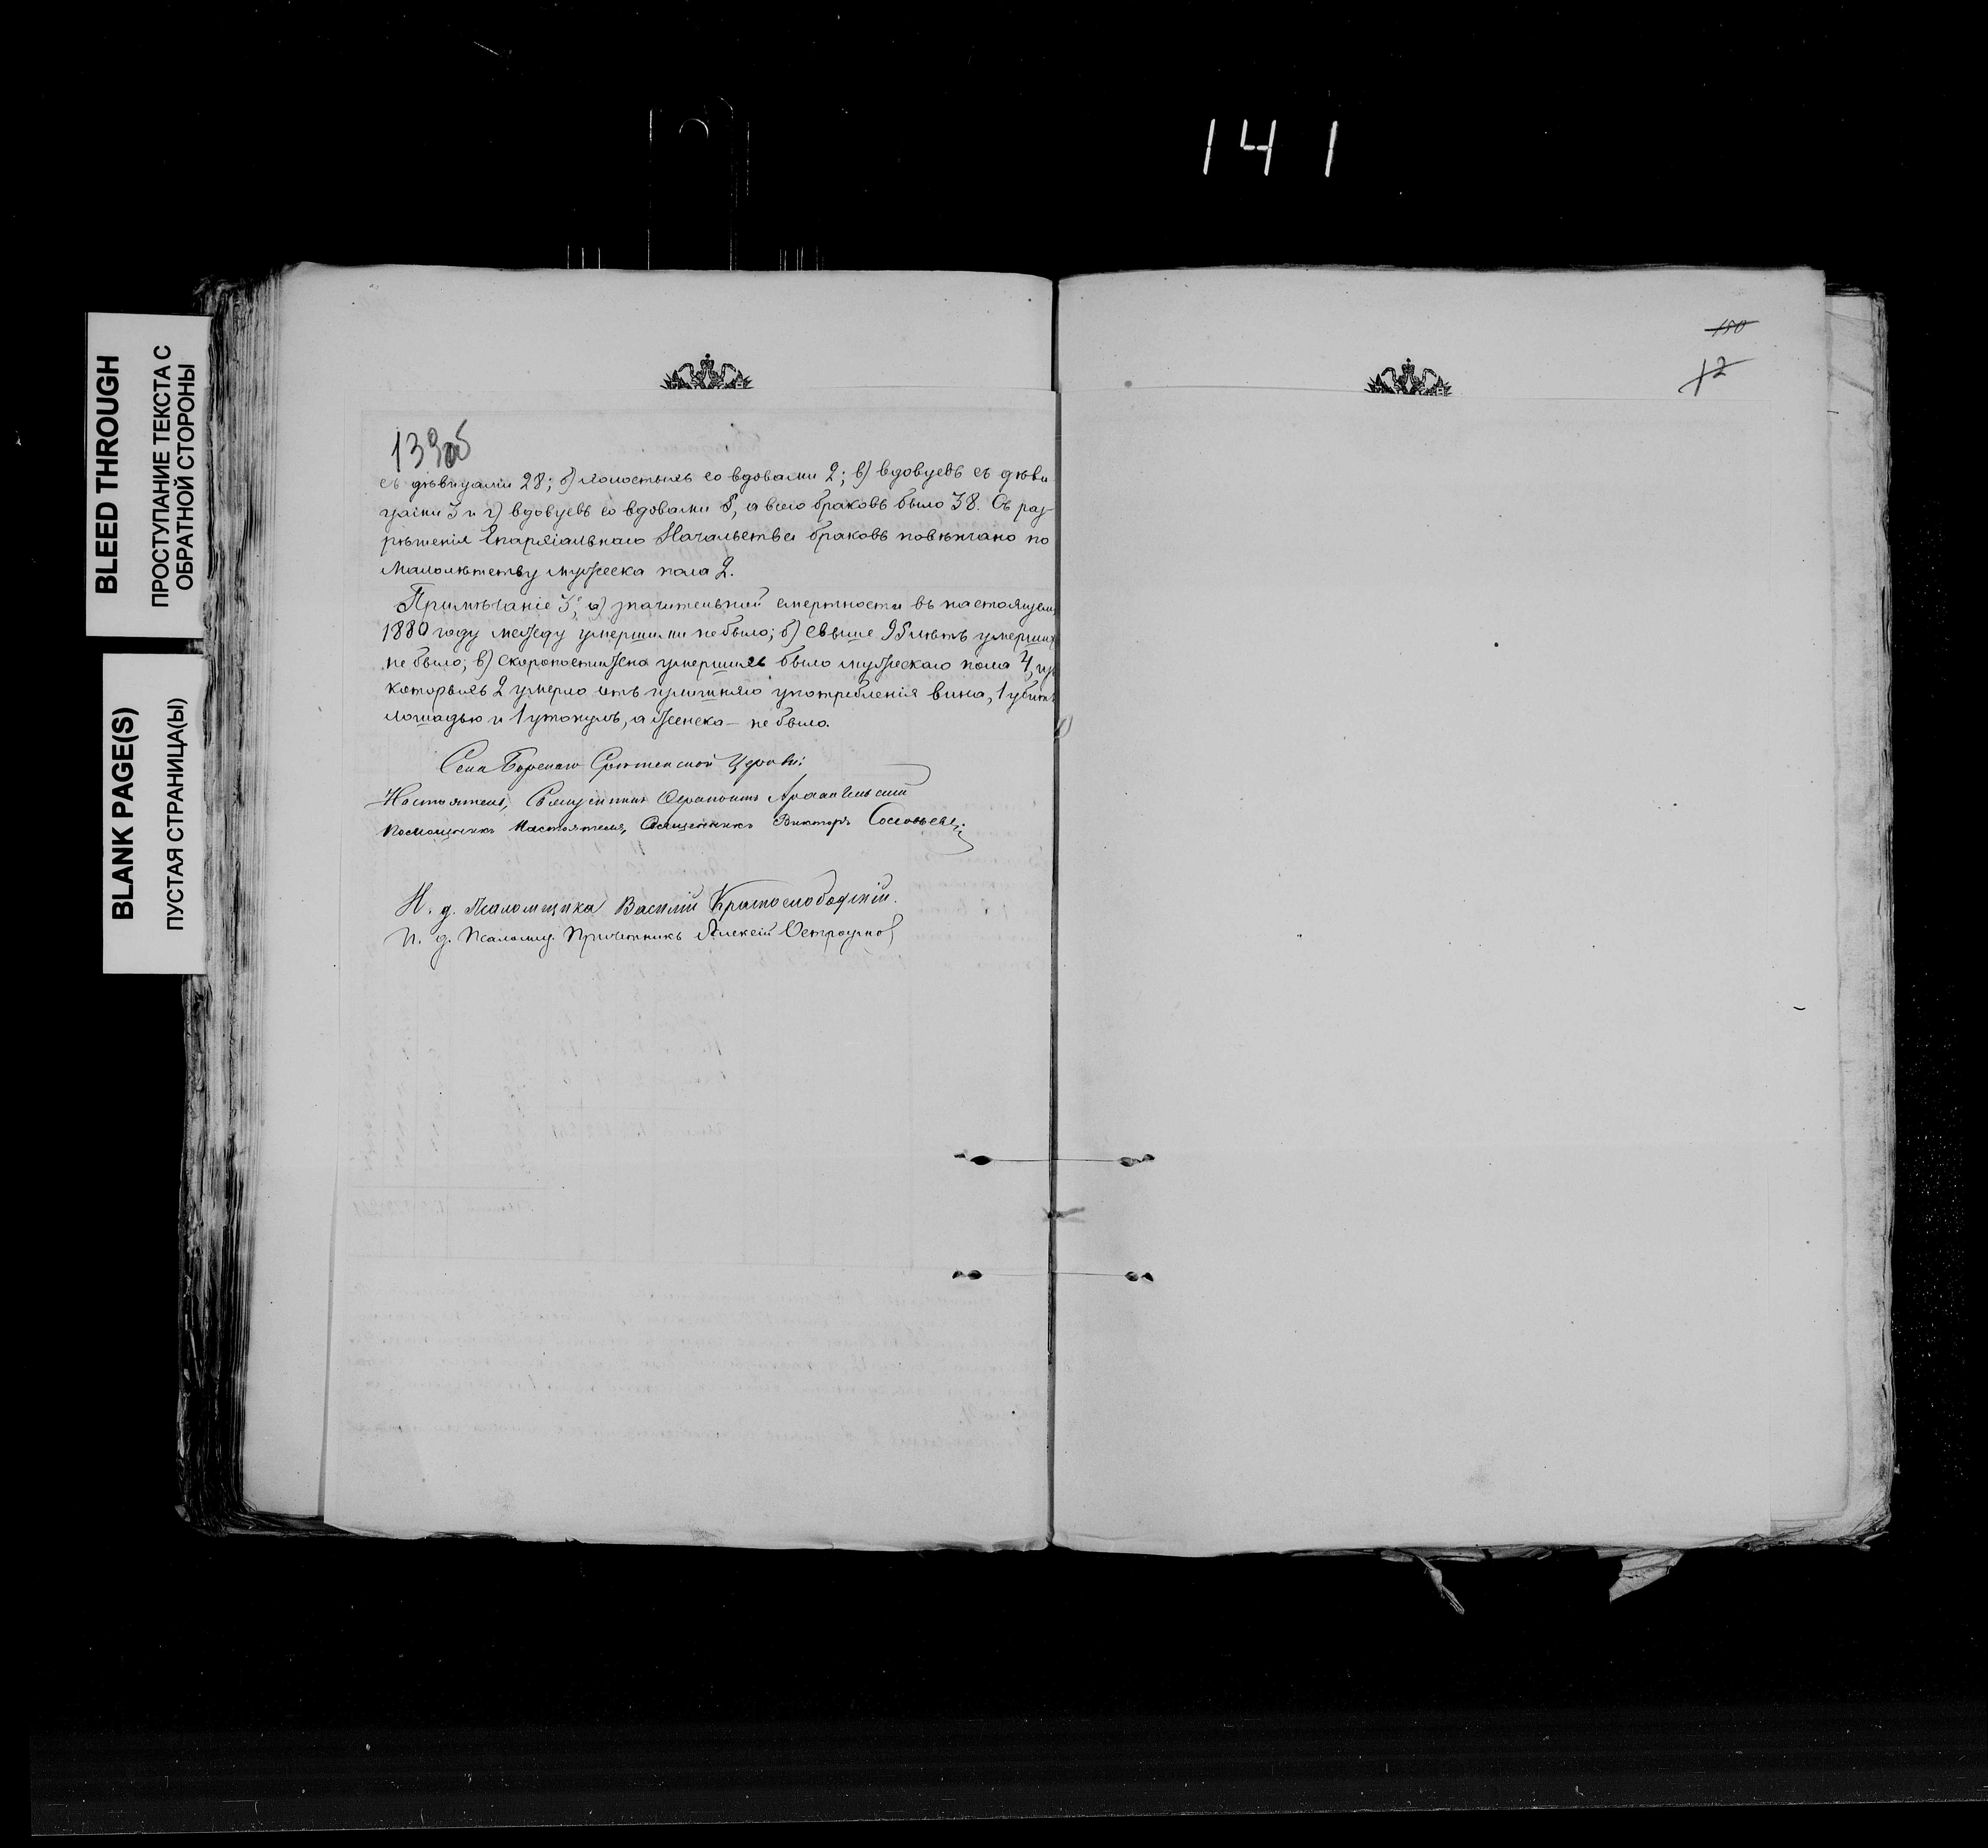 141
BLEED THROUGH
ПРОСТУПАНИЕ ТЕКСТА С
ОБРАТНОЙ СТОРОНЫ
BLANK PAGE(S)
ПУСТАЯ СТРАНИЦА(Ы)
139об
съ дѣвицами 28; б) холостыхъ со вдовами 2; в) вдовцевъ съ дѣви
цами 3 и г) вдовцевъ со вдовами 5, а всего браковъ было 38. Съ раз-
рѣшенія Епархіальнаго Начальства браковъ повѣнчано по
малолѣтству мужеска пола 2.
Примѣчаніе 3е, а) значительной смертности въ настоящем
1880 году между умершими не было; б) свыше 95 лѣтъ умерших
не было; в) скоропостижно умершихъ было мужескаго пола 4, из
которыхъ 2 умерло отъ излишняго употребленія вина, 1 убитъ
лошадью и 1 утонулъ, а женска - не было.
Села Борскаго Срѣтенской Церкви:
Настоятель, Священникъ Архангельский
Помощникъ Настоятеля, Священникъ Викторъ Соловьевъ
И. д. Псаломщика Василій Краснослободскій.
И. д. Псаломщ. Причетникъ Алексій Остроумов
150
12